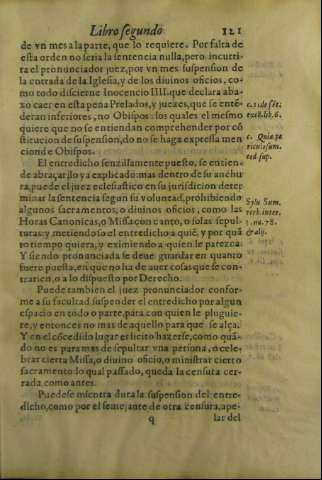 Libro segundo. 121
de vn mes a la parte, que lo requiere. Por falta de
esta orden no seria la sentencia nulla, pero incurri-
ra el pronunciador juez, por vn mes suspension de
la entrada de la Iglesia, y de los diuinos oficios, co-
mo todo discierne Inocencio IIII. que declara aba-
xo caer en esta pena Prelados, y juezes, que se entē-
deran inferiores, no Obispos: los quales el mesmo
quiere que no se entiendan comprehender por cō
stitucion de suspension, do no se haga expressa men
cion de Obispos.
c. 1. de sēt.
exc. lib. 6.
c. Quia pe
riculosum.
eod. sup.
El entredicho senzillamente puesto, se entien-
de abraçar, lo ya explicado: mas dentro de su anchu
ra, puede el juez eclesiastico en su jurisdicion deter
minar la sentencia segun su voluntad, prohibiendo
algunos sacramentos, o diuinos oficios, como las
Horas Canonicas, o Missa con canto, o solas sepul-
turas: y metiendo so el entredicho a quiē, y por quā
to tiempo quiera, y eximiendo a quien le parezca.
Y siendo pronunciada se deue girardar en quanto
fuere puesta, en que no ha de auer cosas que se con-
trarien, o a lo dispuesto por Derecho.
Sylu. Sum.
verb. inter.
1. nu. 78.
& alij.
Puede tambien el juez pronunciador confor-
me a su facultad suspender el entredicho por algun
espacio en todo o parte, para con quien le pluguie-
re, y entonces no mas de aquello para que se alça.
Y en el cōcedido lugar es licito hazerse, como quā-
do no es para mas de sepultar vna persona, o cele-
brar cierta Missa, o diuino oficio, o ministrar cierto
sacramento lo qual passado, queda la censura cer-
rada como antes.
Puedese mientra dura la suspension del entre-
dicho, como por el semejante de otra censura, ape-
q lar del